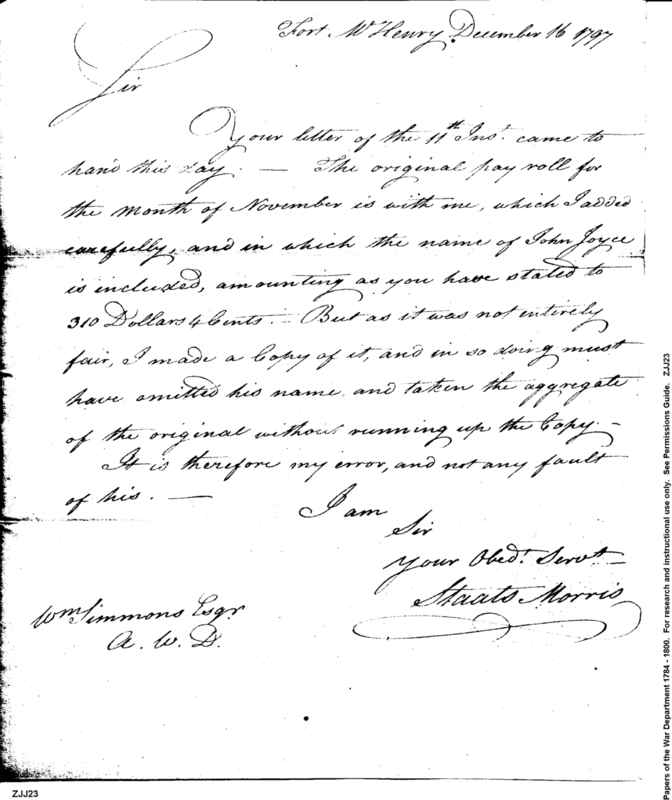 Fort McHenry December 16 1797
Sir
Your letter of the 11th Inst. came to
hand this day. — The original pay roll for
the month of November is with me, which I added
carefully, and in which the name of John Joyce
is included, amounting as you have stated to
310 Dollars 4 Cents. — But as it was not entirely
fair, I made a Copy of it, and in so doing must
have omitted his name and taken the aggregate
of the original without running up the Copy. —
It is therefore my error, and not any fault
of his. —
I am
Sir
Your Obedt. Servt.
Staats Morris
Wm Simmons Esqr.
A. W. D.
ZJJ23
Papers of the War Department 1784 - 1800. For research and instructional use only. See Permissions Guide. ZJJ23